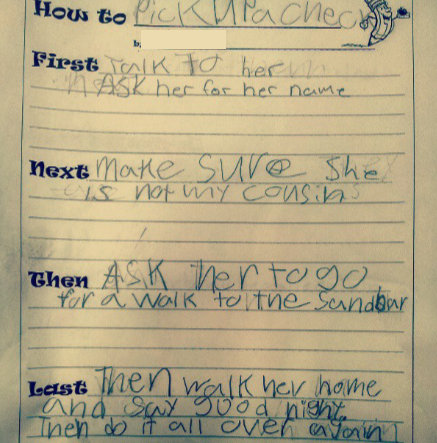 How to Pick Up a Check
by
First Talk to her
ASK her for her name
Next make sure she
is not my cousin
Then Ask her to go
for a walk to the sandbar
Last Then walk her home
and say good night.
Then do it all over again!